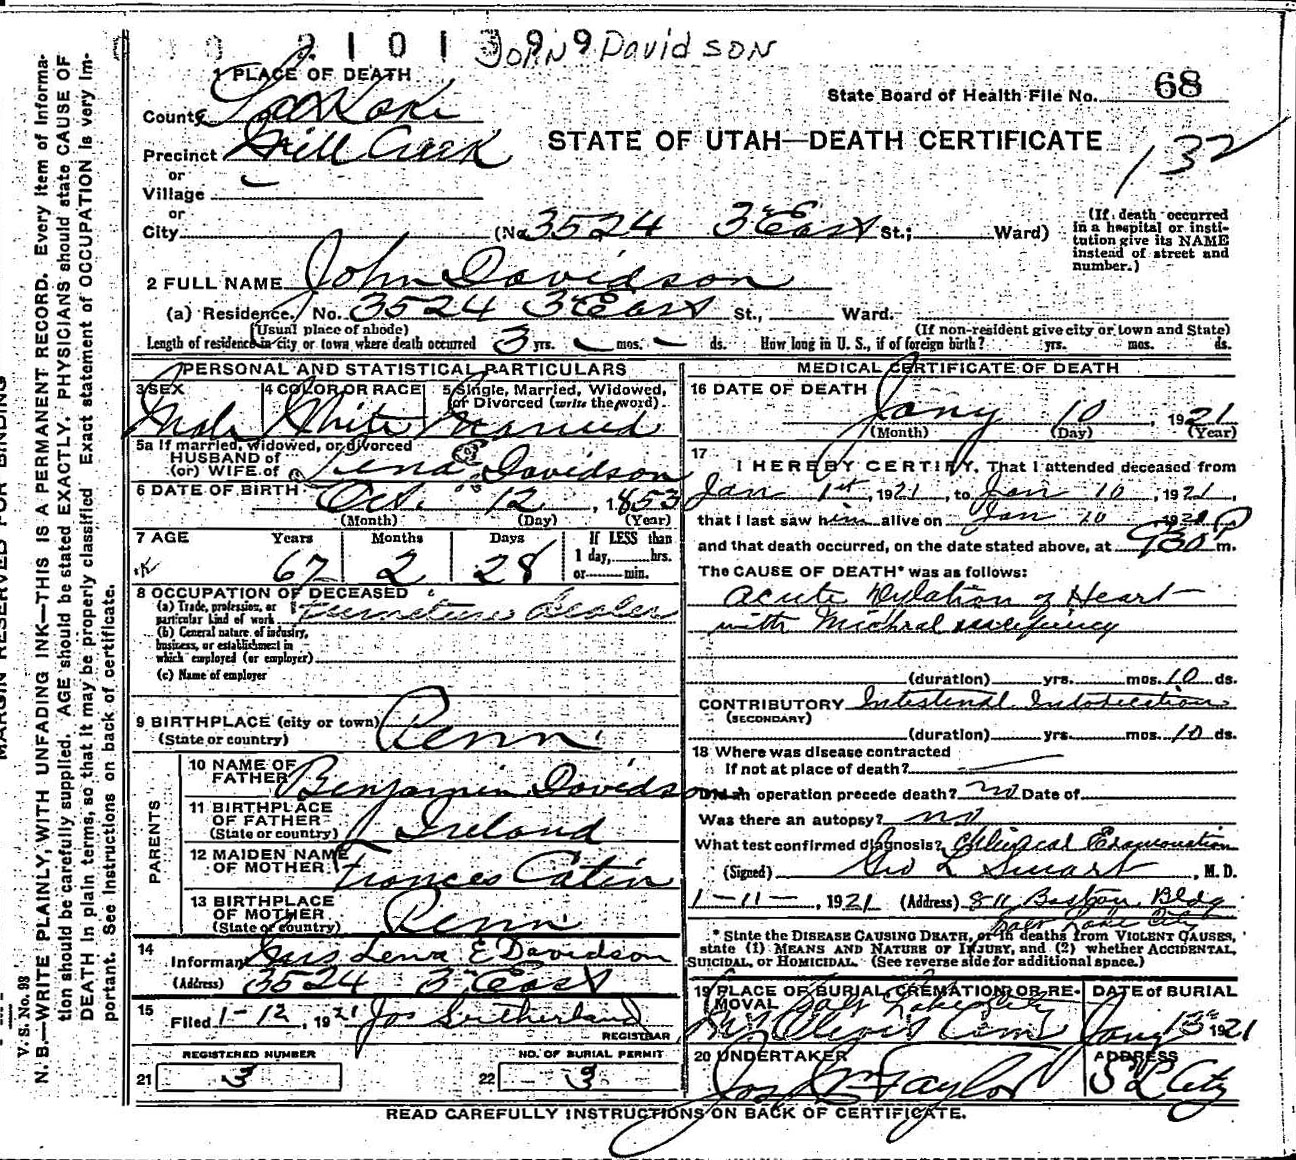 2 1 0 1 3 9 9 JOHN DavidSON
1 PLACE OF DEATH
County Salt Lake
State Board of Health File No. 68
Precinct Mill Creek
STATE OF UTAH—DEATH CERTIFICATE
132
or
Village
or
City (No. 3524 3rd East St.; Ward)
(If death occurred in a hospital or institution give its NAME instead of street and number.)
2 FULL NAME John Davidson
(a) Residence. No. 3524 3rd East St., Ward.
(Usual place of abode) (If non-resident give city or town and State)
Length of residence in city or town where death occurred 3 yrs. — mos. — ds. How long in U. S., if of foreign birth? yrs. mos. ds.
PERSONAL AND STATISTICAL PARTICULARS
3 SEX Male
4 COLOR OR RACE White
5 Single, Married, Widowed, or Divorced (write the word). Married
5a If married, widowed, or divorced
HUSBAND of
(or) WIFE of Lena E Davidson
6 DATE OF BIRTH Oct. 12, 1853
(Month) (Day) (Year)
7 AGE Years Months Days If LESS than
67 2 28 1 day, hrs.
or min.
8 OCCUPATION OF DECEASED
(a) Trade, profession, or
particular kind of work Furniture Dealer
(b) General nature of industry,
business, or establishment in
which employed (or employer)
(c) Name of employer
9 BIRTHPLACE (city or town)
(State or country) Penn.
PARENTS
10 NAME OF
FATHER Benjamin Davidson
11 BIRTHPLACE
OF FATHER
(State or country) Ireland
12 MAIDEN NAME
OF MOTHER Frances Catin
13 BIRTHPLACE
OF MOTHER
(State or country) Penn.
14
Informant Mrs Lena E Davidson
(Address) 3524 3rd East
15 Filed 1-12, 1921 Jos Sutherland
REGISTRAR
REGISTERED NUMBER
21 3
NO. OF BURIAL PERMIT
22 3
MEDICAL CERTIFICATE OF DEATH
16 DATE OF DEATH Jany 10 1921
(Month) (Day) (Year)
17
I HEREBY CERTIFY, That I attended deceased from
Jan 1st, 1921, to Jan 10, 1921,
that I last saw him alive on Jan 10, 1921
and that death occurred, on the date stated above, at 930 P m.
The CAUSE OF DEATH* was as follows:
Acute Dylation of Heart
with Michral
(duration) yrs. mos. 10 ds.
CONTRIBUTORY Intestinal Intoxication
(SECONDARY)
(duration) yrs. mos. 10 ds.
18 Where was disease contracted
If not at place of death?
Did an operation precede death? no Date of
Was there an autopsy? no
What test confirmed diagnosis? Clinical Examination
(Signed) Geo L Smart, M. D.
1-11-, 1921 (Address) 811 Boston Bldg
Salt Lake City
* State the DISEASE CAUSING DEATH, or in deaths from VIOLENT CAUSES,
state (1) MEANS AND NATURE OF INJURY, and (2) whether ACCIDENTAL,
SUICIDAL, or HOMICIDAL. (See reverse side for additional space.)
19 PLACE OF BURIAL, CREMATION OR RE-
MOVAL Salt Lake City
Mt Olivis Cem
DATE of BURIAL
Jany 13th 1921
20 UNDERTAKER
Jos Wm Taylor
ADDRESS
S L City
READ CAREFULLY INSTRUCTIONS ON BACK OF CERTIFICATE.
MARGIN RESERVED FOR BINDING
V. S. No. 98
N. B.—WRITE PLAINLY, WITH UNFADING INK—THIS IS A PERMANENT RECORD. Every item of Informa-
tion should be carefully supplied. AGE should be stated EXACTLY. PHYSICIANS should state CAUSE OF
DEATH in plain terms, so that it may be properly classified. Exact statement of OCCUPATION is very im-
portant. See instructions on back of certificate.